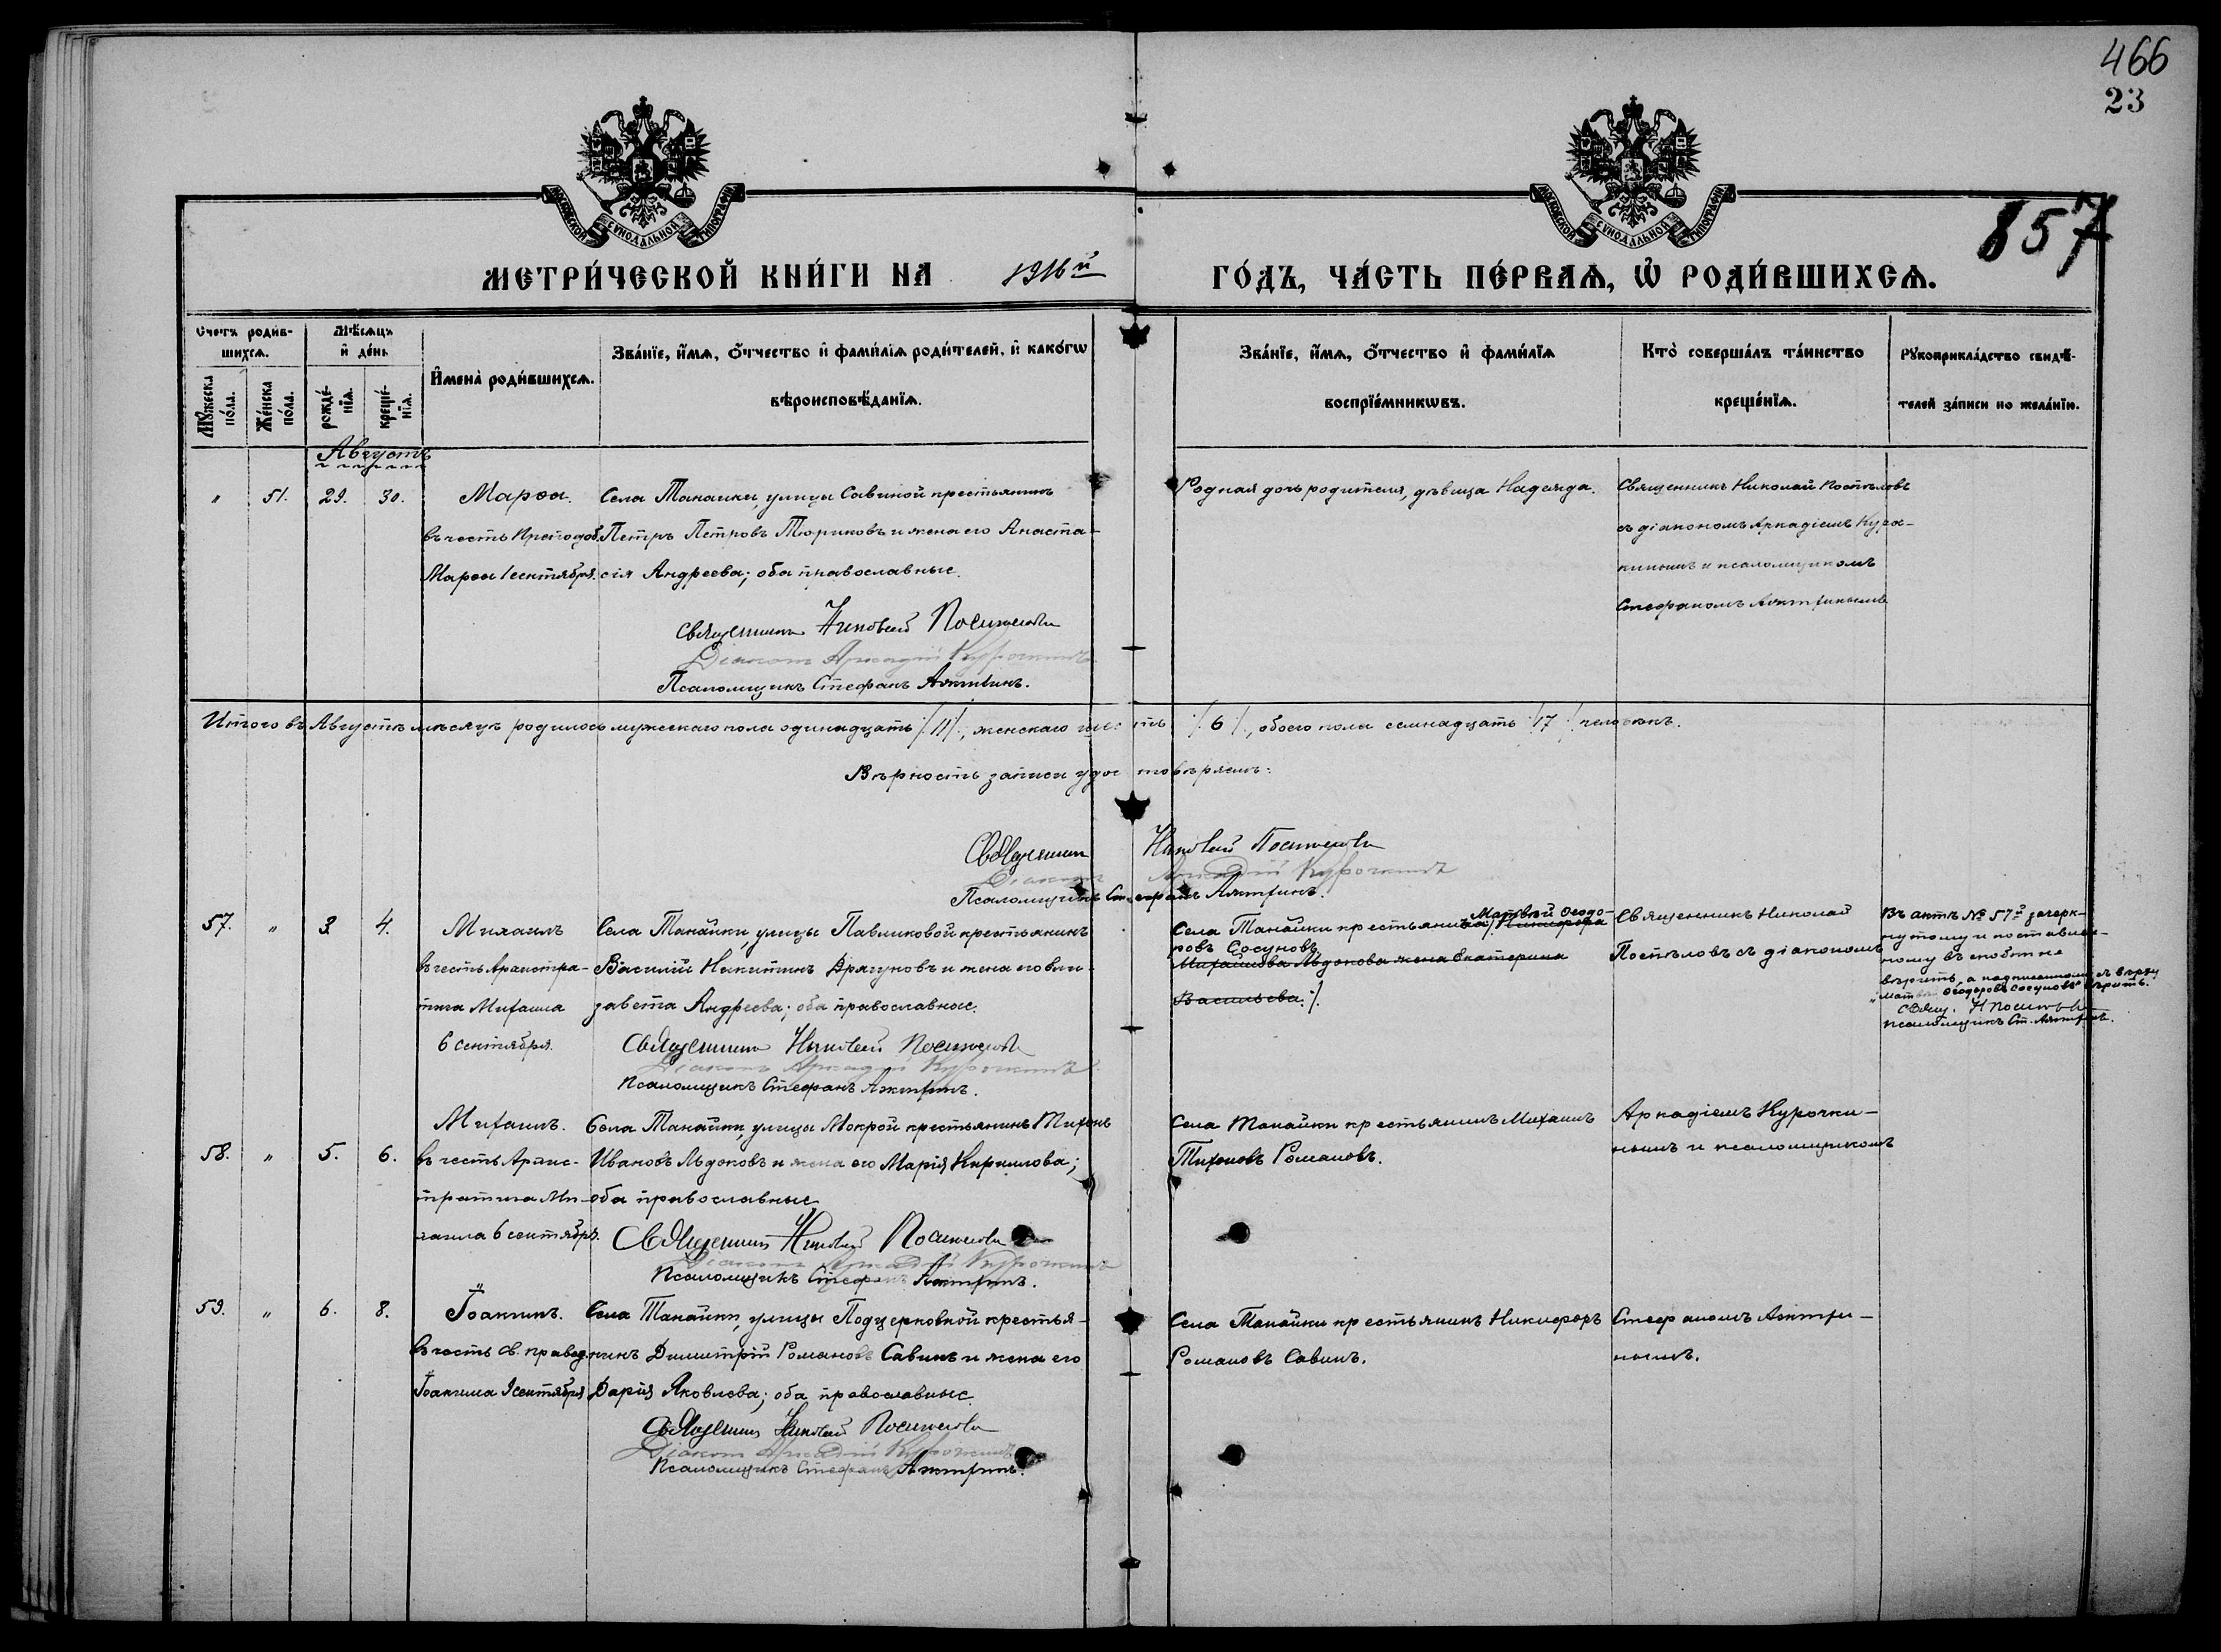 466
23
857
МОСКОВСКОЙ СѴНОДАЛЬНОЙ ТИПОГРАФІИ
МОСКОВСКОЙ СѴНОДАЛЬНОЙ ТИПОГРАФІИ
МЕТРИ́ЧЕСКОЙ КНИ́ГИ НА 1916й
ГО́ДЪ, ЧА́СТЬ ПЕ́РВАѦ, Ѡ҆ РОДИ́ВШИХСѦ.
Счетъ родив-
шихсѧ.
Мѣ́сѧцъ
и҆ де́нь
Мꙋжеска
по́ла.
Же́нска
по́ла.
рожде́-
нїѧ.
креще́-
нїѧ.
И҆мена̀ роди́вшихсѧ.
Зва́нїе, и҆́мѧ, ѻ҆́тчество и҆ фами́лїѧ роди́телей, и҆ како́гѡ
вѣроисповѣ́данїѧ.
Зва́нїе, и҆́мѧ, ѻ҆́тчество и҆ фами́лїѧ
воспрїе́мникѡвъ.
Кто̀ соверша́лъ та́инство
креще́нїѧ.
Рꙋкоприкла́дство свидѣ́-
телей за́писи по жела́нїю.
Августъ
" 51. 29. 30.
Марѳа.
въ честь Преподоб.
Марѳы 1 сентября.
Села Танайки, улицы Савиной крестьянинъ
Петръ Петровъ Тюриковъ и жена его Анаста-
сія Андреева; оба православные.
Священникъ Николай Поспѣловъ
Діаконъ Аркадій Курочкинъ
Псаломщикъ Стефанъ
Родная дочь родителя, дѣвица Надежда.
Священникъ Николай Поспѣловъ
съ діакономъ Аркадіемъ Куро-
кинымъ и псаломщикомъ
Стефаномъ
Итого въ Августѣ мѣсяцѣ родилось мужескаго пола одинадцать /:11:/, женскаго шесть /:6:/, обоего пола семнадцать /:17:/ человѣкъ.
Вѣрность записи удостовѣряемъ:
Священникъ Николай Поспѣловъ
Діаконъ Аркадій Курочкинъ
Псаломщикъ Стефанъ
57. " 3. 4.
Михаилъ
въ честь Архистра-
тига Михаила
6 сентября.
Села Танайки, улицы Павликовой крестьянинъ
Василій Никитинъ Драгуновъ и жена его Ели-
завета Андреева; оба православные.
Священникъ Николай Поспѣловъ
Діаконъ Аркадій Курочкинъ
Псаломщикъ Стефанъ
Матвѣй Ѳеодо-
Села Танайки крестьянинъ /: Никифора
ровъ Сосуновъ
Михайлова Льдокова жена Екатерина
Васильева :/.
Священникъ Николай
Поспѣловъ съ діакономъ
Въ актѣ № 57й зачерк-
нутому и поставлен-
ному въ скобки не
вѣрить, а надписанному съ верху
"Матвѣй Ѳеодоровъ Сосуновъ" вѣрить.
Свящ. Н Поспѣловъ
псаломщикъ Ст.
58. " 5. 6.
Михаилъ.
въ честь Архис-
тратига Ми-
хаила 6 сентября.
Села Танайки, улицы Мокрой крестьянинъ Тихонъ
Ивановъ Льдоковъ и жена его Марія Кириллова;
оба православные
Священникъ Николай Поспѣловъ
Діаконъ Аркадій Курочкинъ
Псаломщикъ Стефанъ
Села Танайки крестьянинъ Михаилъ
Тихоновъ Романовъ.
Аркадіемъ Курочки-
нымъ и псаломщикомъ
59. " 6. 8.
Іоакимъ.
въ честь св. правед.
Іоакима 9 сентября
Села Танайки, улицы Подцерковной крестья-
нинъ Димитрій Романовъ Савинъ и жена его
Дарія Яковлева; оба православные.
Священникъ Николай Поспѣловъ
Діаконъ Аркадій Курочкинъ
Псаломщикъ Стефанъ
Села Танайки крестьянинъ Никифоръ
Романовъ Савинъ.
Стефаномъ
нымъ.